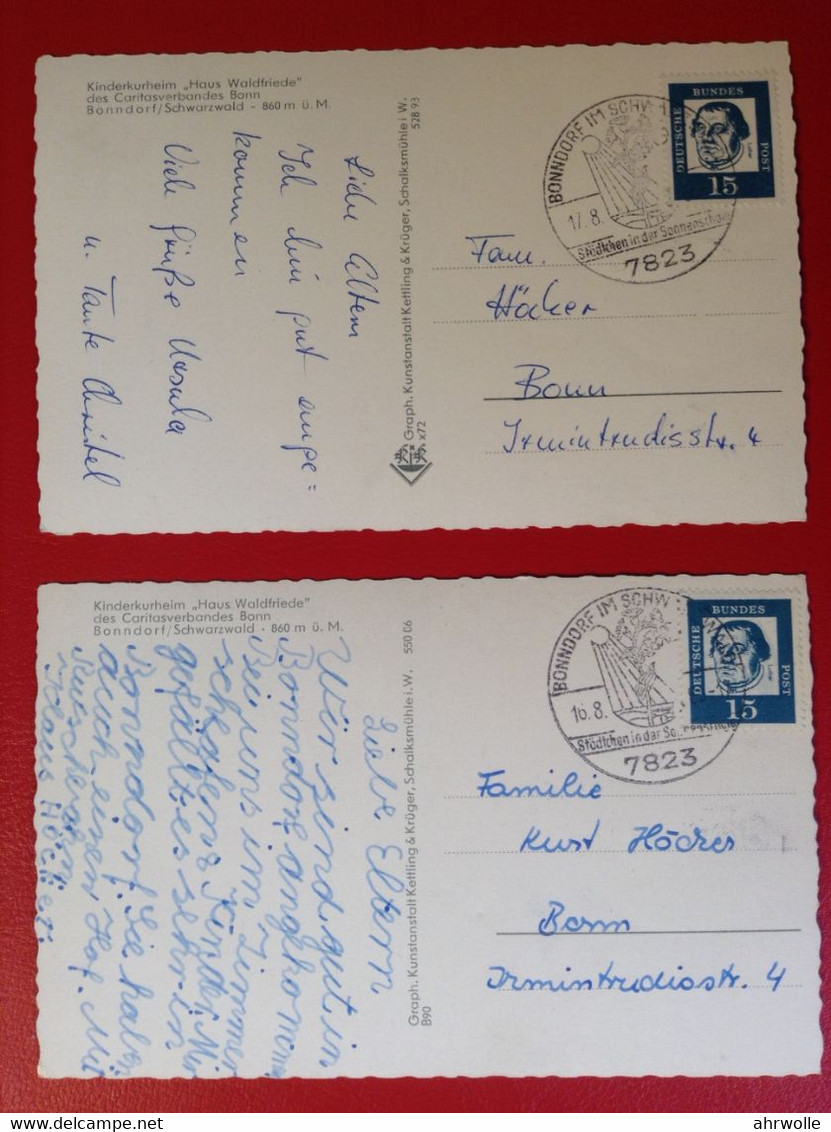 Kinderkurheim „Haus Waldfriede"
des Caritasverbandes Bonn
Bonndorf/Schwarzwald - 860 m ü. M.
Liebe Eltern
Ich bin gut ange=
kommen
Viele Grüße Ursula
u. Tante Christel
Graph. Kunstanstalt Kettling & Krüger, Schalksmühle i. W. 528 93
x72
BONNDORF IM SCHW
17. 8.
Städtchen in der Sonnenschale
7823
DEUTSCHE BUNDES POST
Luther
15
Fam.
Höcker
Bonn
Irmintrudisstr. 4
Kinderkurheim „Haus Waldfriede"
des Caritasverbandes Bonn
Bonndorf/Schwarzwald - 860 m ü. M.
Liebe Eltern
Wir sind gut in
Bonndorf angkomm
Bei uns im Zimmer
schlafen 8 Kinder. Mir
gefällt es sehr in
Bonndorf. Sie haben
auch einen Hof. Mit
Klaus Höcker.
Graph. Kunstanstalt Kettling & Krüger, Schalksmühle i. W. 550 06
B90
BONNDORF IM SCHW
16. 8.
Städtchen in der Sonnenschale
7823
DEUTSCHE BUNDES POST
15
Familie
Kurt Höcker
Bonn
Irmintrudisstr. 4
delcampe.net
ahrwolle